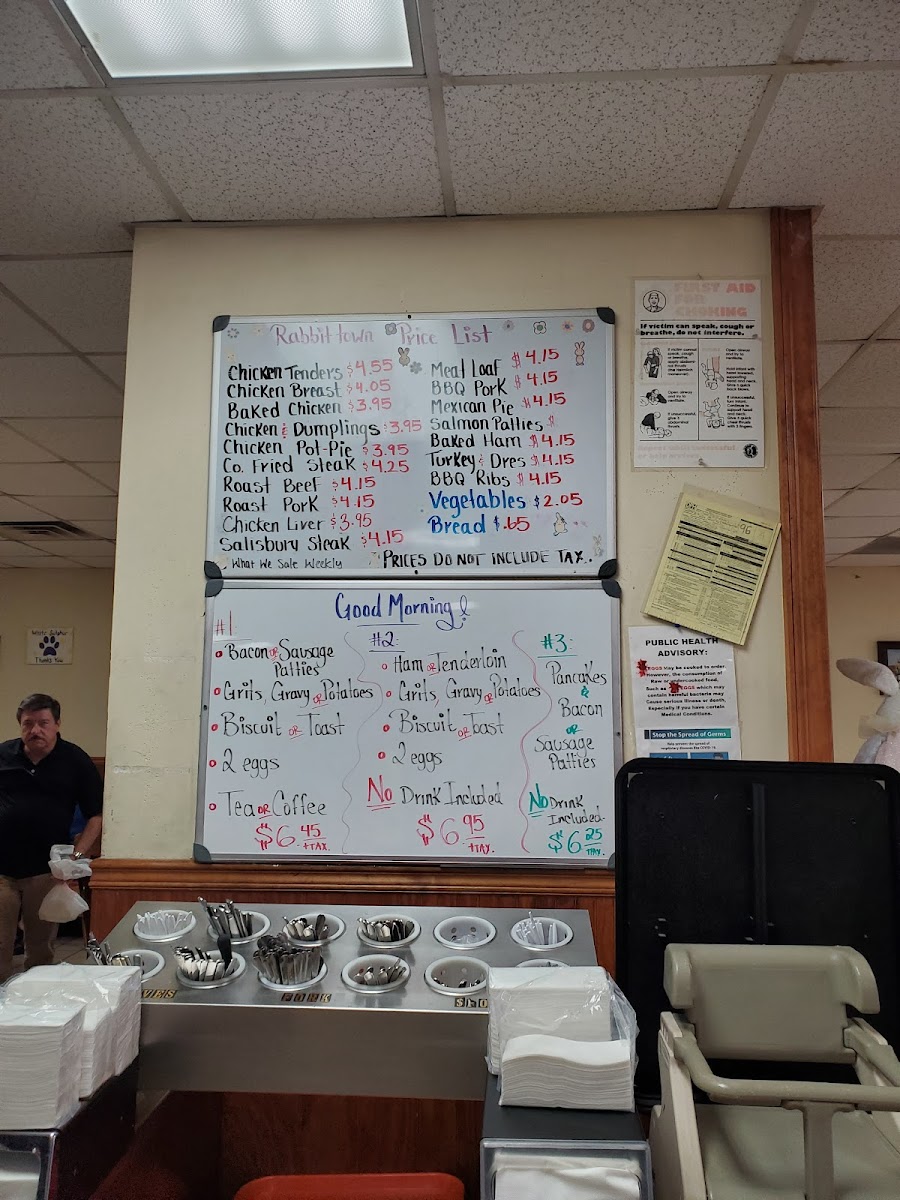 Rabbittown Price List
Chicken Tenders $4.55
Chicken Breast $4.05
Baked Chicken $3.95
Chicken & Dumplings $3.95
Chicken Pot-Pie $3.95
Co. Fried Steak $4.25
Roast Beef $4.15
Roast Pork $4.15
Chicken Liver $3.95
Salisbury Steak $4.15
What We Sale Weekly
Meat Loaf $4.15
BBQ Pork $4.15
Mexican Pie $4.15
Salmon Patties $
Baked Ham $4.15
Turkey & Dres $4.15
BBQ Ribs $4.15
Vegetables $2.05
Bread $.65
PRICES DO NOT INCLUDE TAX..
Good Morning!
#1
Bacon or Sausage
Patties
Grits, Gravy or Potatoes
Biscuit or Toast
2 eggs
Tea or Coffee
$6.45
+TAX.
#2
Ham or Tenderloin
Grits, Gravy or Potatoes
Biscuit or Toast
2 eggs
No Drink Included
$6.95
+TAX.
#3
Pancakes
&
Bacon
or
Sausage
Patties
No Drink
Included
$6.25
+TAX.
FIRST AID
FOR
CHOKING
If victim can speak, cough or
breathe, do not interfere.
96
PUBLIC HEALTH
ADVISORY:
EGGS may be cooked to order.
However, the consumption of
Raw or undercooked food,
Such as EGGS which may
contain harmful bacteria may
Cause serious illness or death,
Especially if you have certain
Medical Conditions.
Stop the Spread of Germs
Thanks You
FORK